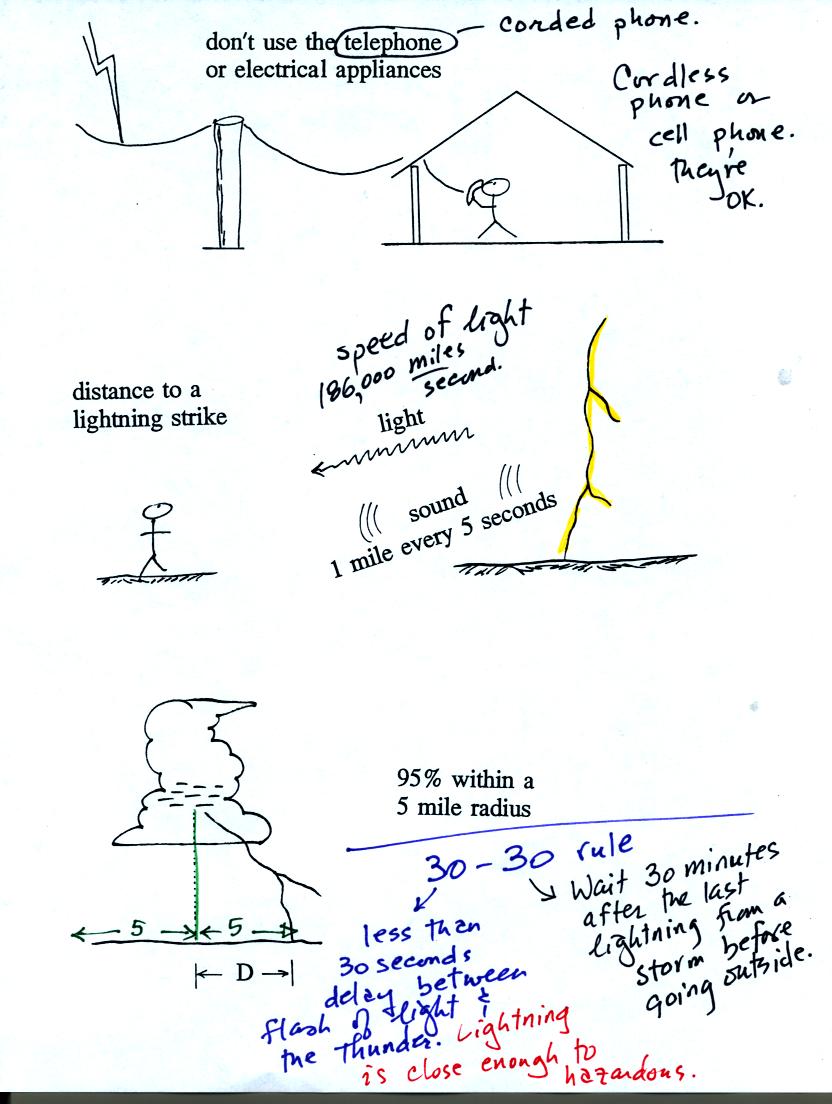 don't use the telephone
or electrical appliances
corded phone.
Cordless
phone or
cell phone.
they're
OK.
speed of light
186,000 miles
second.
distance to a
lightning strike
light
sound
1 mile every 5 seconds
95% within a
5 mile radius
30-30 rule
less than
30 seconds
delay between
flash of light &
the thunder. Lightning
is close enough to
hazardous.
Wait 30 minutes
after the last
lightning from a
storm before
going outside.
5 5
D